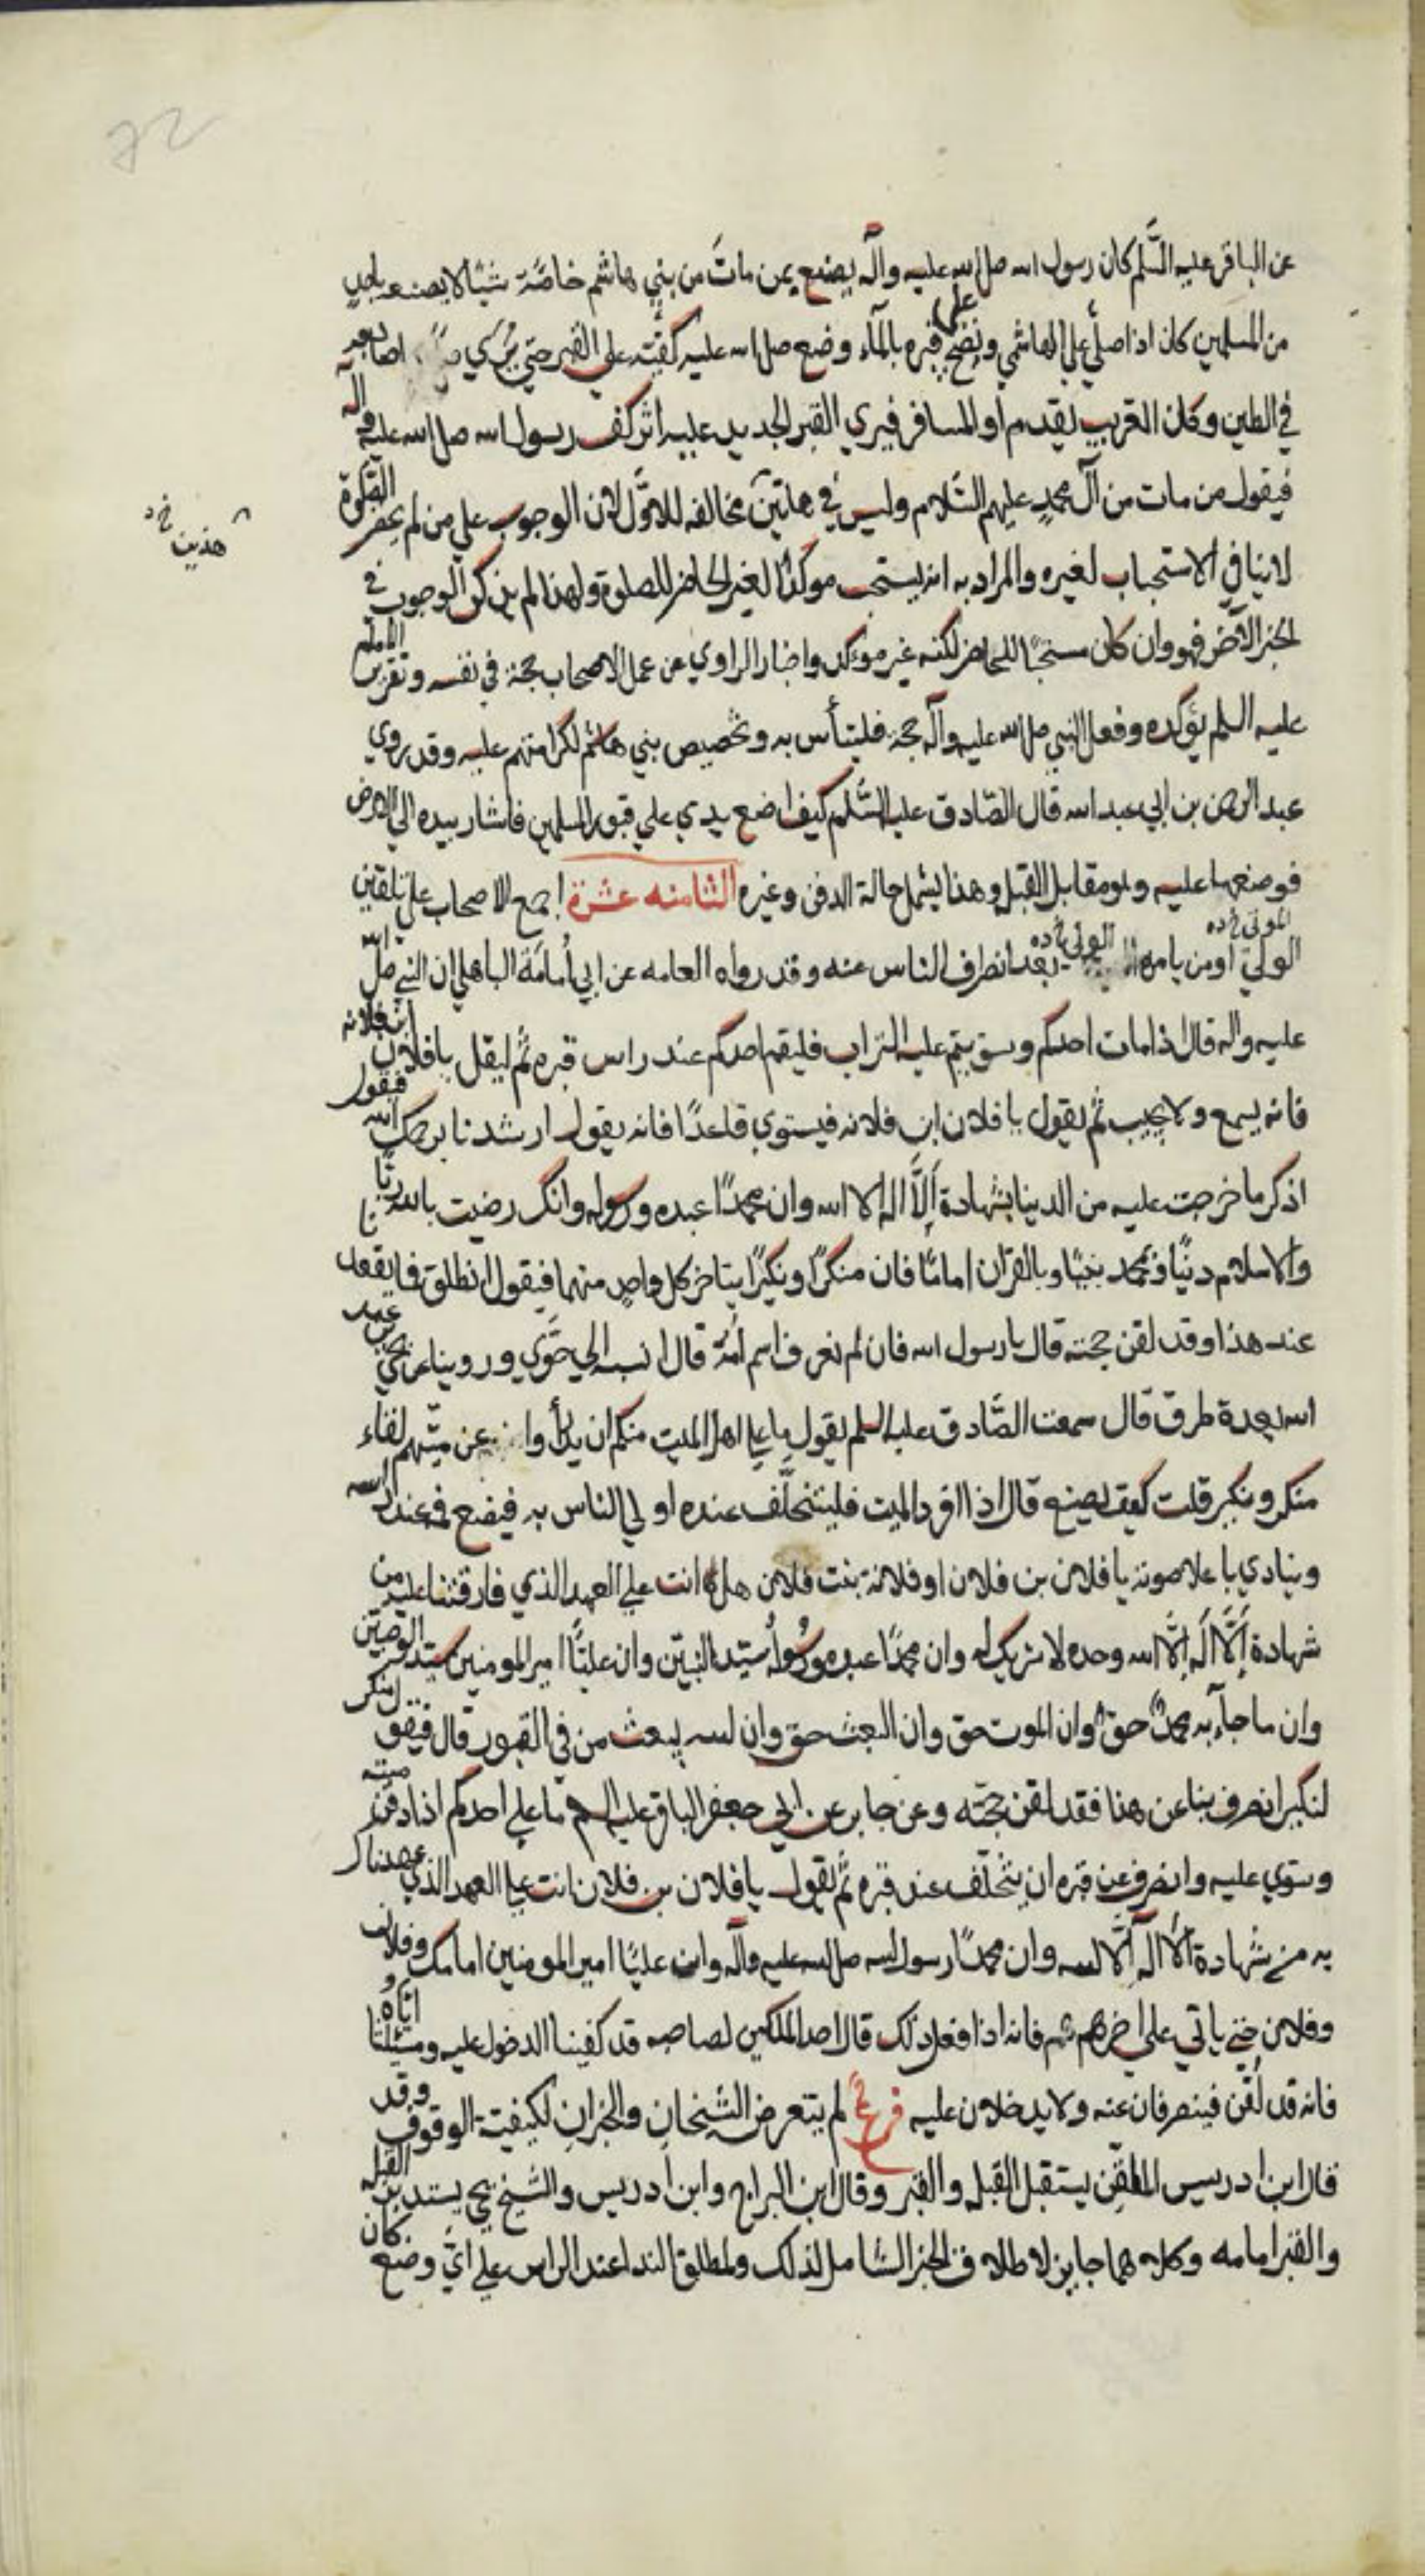 72
عن الباقر عليه السلم كان رسول الله صلي الله عليه وآله يصنع بمن مات من بني هاشم خاصة شيئا لا يصنعه باحد
من المسلمين كان اذا صلي علي الهاشمي ونضح علي قبره بالمآء وضع صلي الله عليه كفيه علي القبر حتي تري اصابعه
في الطين وكان الغريب يقدم او المسافر فيري القبر الجديد عليه اثر كف رسول الله صلي الله عليه وآله
فيقول من مات من آل محمد عليهم السلام وليس في هاتين مخالفه للاول لان الوجوب علي من لم يحضر الصلوة
هذين خ د
لا ينافي الاستحباب لغيره والمراد به انه يستحب موكدا لغير الحاضر للصلوة ولهذا لم يذكر الوجوب في
الخبر الآخر فهو وان كان مستحبا للحاضر لكنه غير موكد واخبار الراوي عن عمل الاصحاب حجة في نفسه وتقرير الامام
عليه السلم يؤكده وفعل النبي صلي الله عليه وآله حجة فليتأس به وتخصيص بني هاشم لكرامتهم عليه وقد روي
عبد الرحمن بن ابي عبد الله قال الصادق عليه السلم كيف اضع يدي علي قبور المسلمين فاشار بيده الي الارض
فوضعها عليه وهو مقابل القبله وهذا يشمل حالة الدفن وغيره الثامنه عشرة اجمع الاصحاب علي تلقين
الولي او من يامره الولي خ ده بعد انصراف الناس عنه وقد رواه العامه عن ابي أمامة الباهلي ان النبي صلي الله
عليه واله قال اذا مات احدكم وسويتم عليه التراب فليقم احدكم عند راس قبره ثم ليقل يا فلان ابن فلانه
فانه يسمع ولا يجيب ثم يقول يا فلان ابن فلانه فيستوي قاعدا فانه يقول ارشدنا يرحمك الله فيقول
اذكر ما خرجت عليه من الدنيا شهادة ألا اله الا الله وان محمدا عبده ورسوله وانك رضيت بالله ربا
والاسلام دينا وبمحمد نبيا وبالقرآن اماما فان منكرا ونكيرا يتاخر كل واحد منهما فيقول انطلق فما يقعدنا
عند هذا وقد لقن حجته قال يا رسول الله فان لم نعرف اسم امه قال انسبه الي حوي وروينا عن يحيي بن عبد
الله بعدة طرق قال سمعت الصادق عليه السلم يقول ما علي اهل الميت منكم ان يدرأوا عن ميتهم لقاء
منكر ونكير قلت كيف يصنع قال اذا افرد الميت فليتخلف عنده اولي الناس به فيضع فمه عند راسه
وينادي باعلا صوته يا فلان بن فلان او فلانة بنت فلان هل انت علي العهد الذي فارقتنا عليه من
شهادة ألا اله الا الله وحده لا شريك له وان محمدا عبده ورسوله سيد النبيين وان عليا امير المومنين سيد الوصيين
وان ما جآء به محمد حق وان الموت حق وان البعث حق وان الله يبعث من في القبور قال فيقول منكر
لنكير انصرف بنا عن هذا فقد لقن حجته وعن جابر عن ابي جعفر الباقر عليه السلم ما علي احدكم اذا دفن ميته
وسوي عليه وانصرف عن قبره ان يتخلف عند قبره ثم يقول يا فلان بن فلان انت علي العهد الذي عهدناك
به من شهادة ألا اله الا الله وان محمدا رسول الله صلي الله عليه وآله وان عليا امير المومنين امامك وفلان
وفلان حتي ياتي علي اخرهم فانه اذا فعل ذلك قال احد الملكين لصاحبه قد كفينا الدخول عليه ومسئلتنا اياه
فانه قد لقن فينصرفان عنه ولا يدخلان عليه فرع لم يتعرض الشيخان والخبران لكيفية الوقوف وقد
قال ابن ادريس الملقن يستقبل القبلة والقبر وقال ابن البراج وابن ادريس والشيخ يحيي يستدبر القبله
والقبر امامه وكلاهما جايز لاطلاق الخبر الشامل لذلك ولمطلق الندا عند الراس علي اي وضع كان